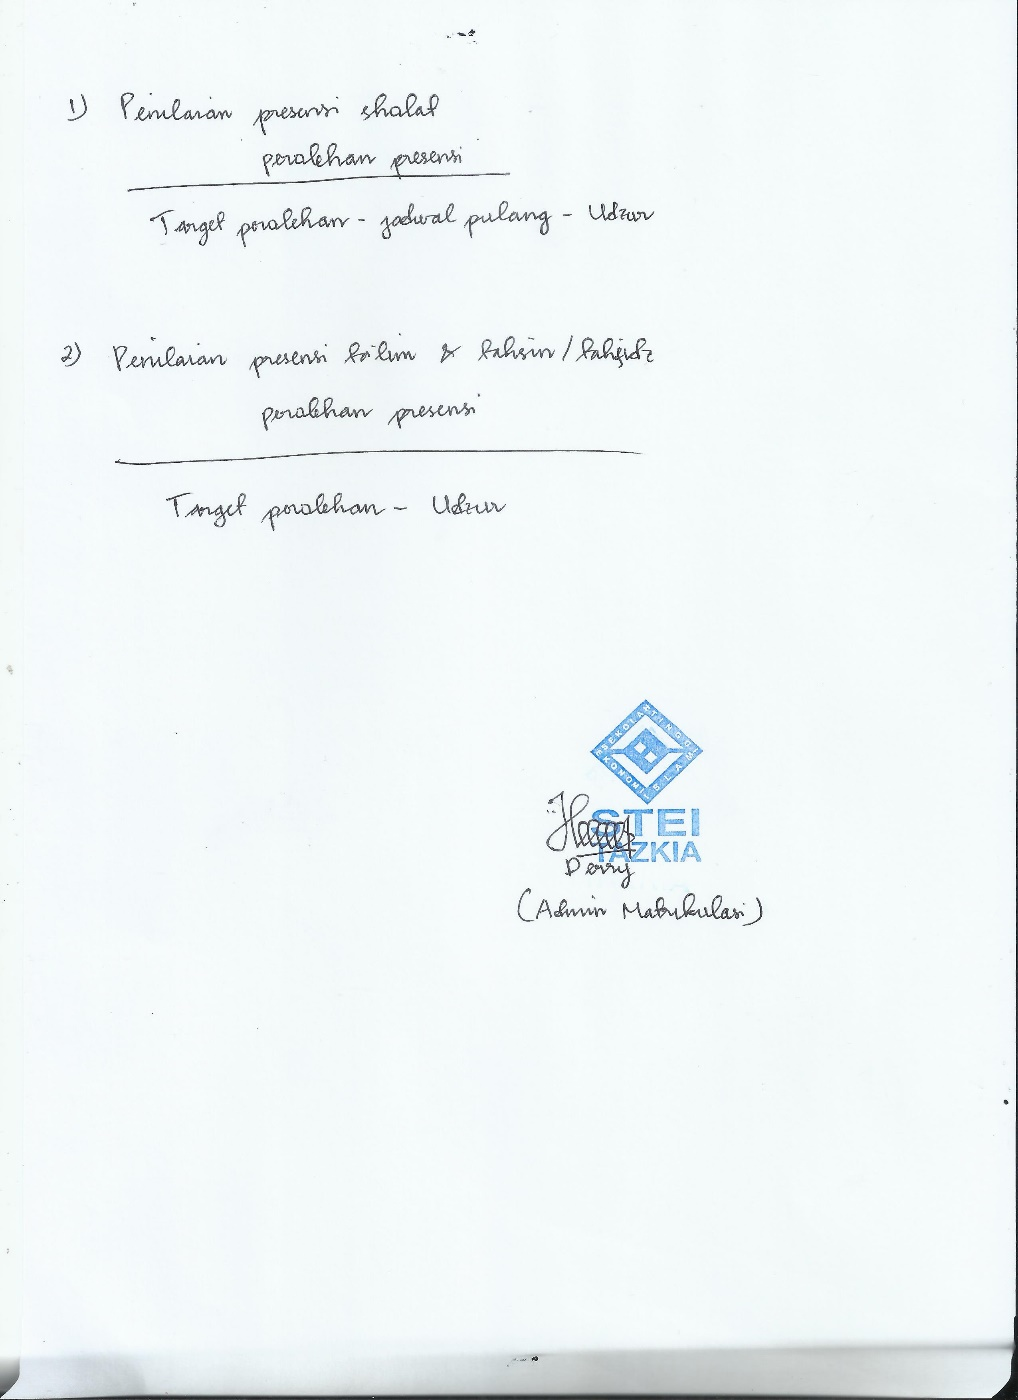 1) Penilaian presensi shalat
perolehan presensi
Target perolehan - jadwal pulang - Udzur
2) Penilaian presensi ta'lim & tahsin/tahfidz
perolehan presensi
Target perolehan - Udzur
SEKOLAH TINGGI
EKONOMI ISLAM
STEI
TAZKIA
Derry
(Admin Matrikulasi)